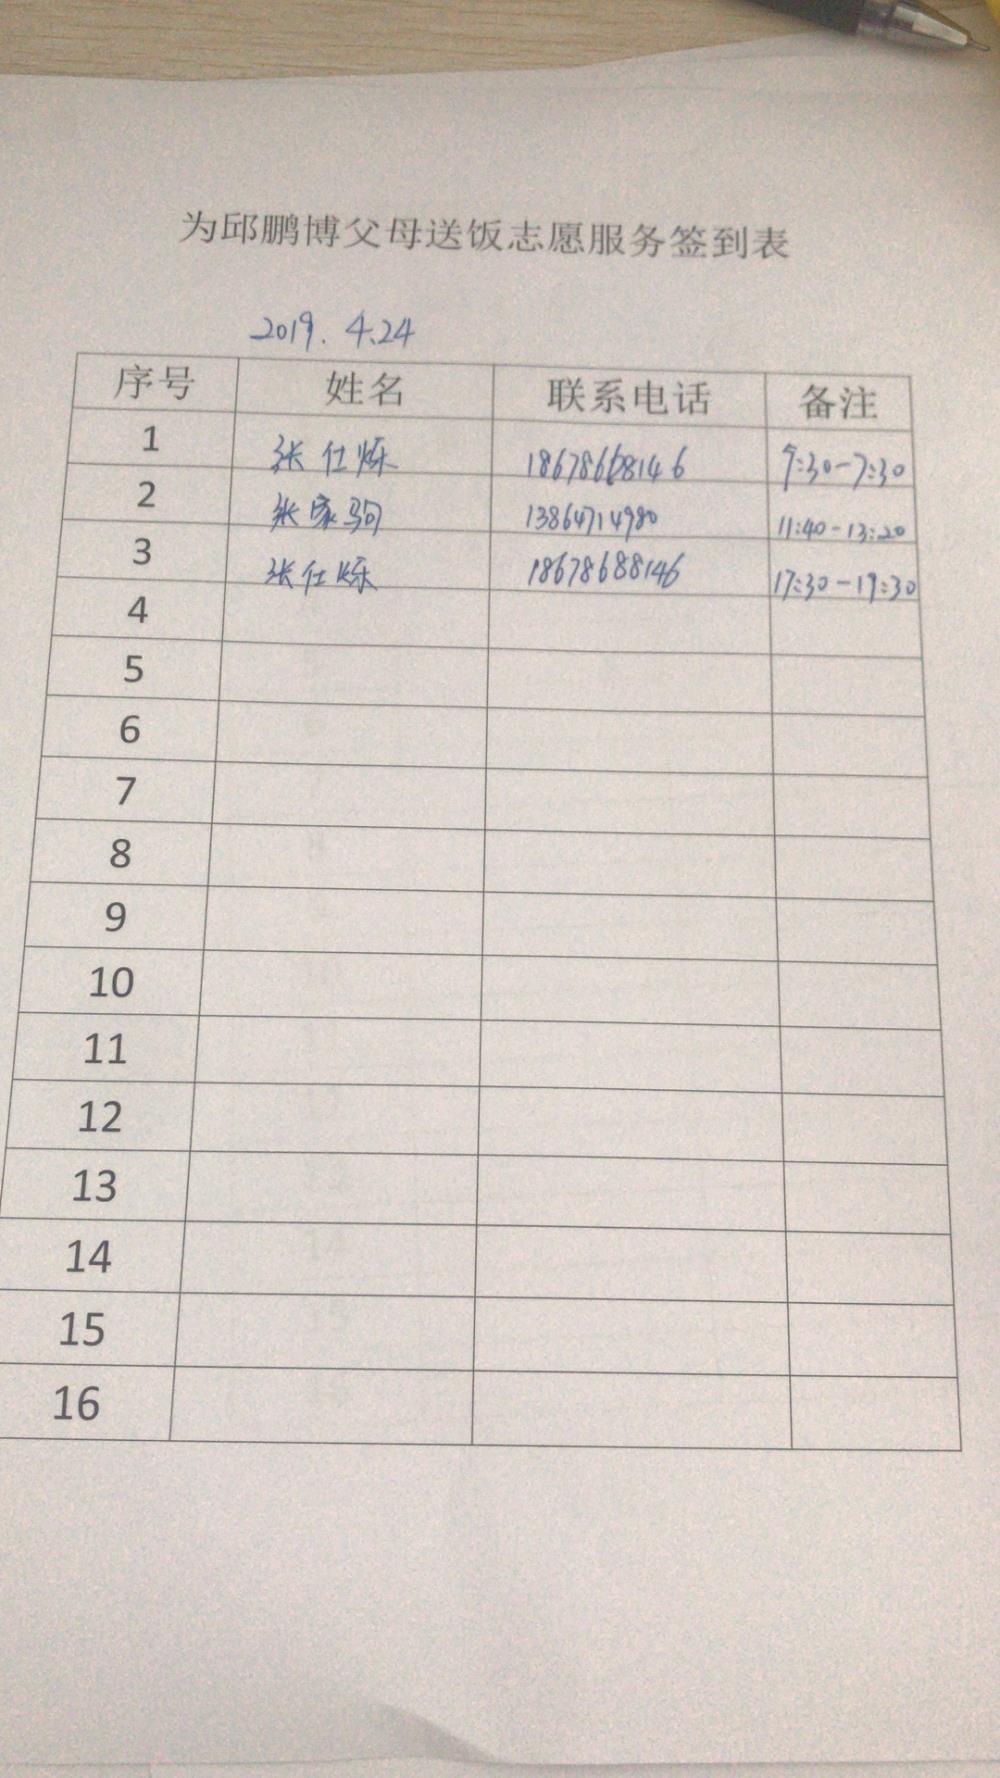 为邱鹏博父母送饭志愿服务签到表
2019. 4.24
序号 姓名 联系电话 备注
1 张仕烁 18678688146
2 张家驹 13864714980 11:40-13:20
3 张仕烁 18678688146 17:30-19:30
4
5
6
7
8
9
10
11
12
13
14
15
16